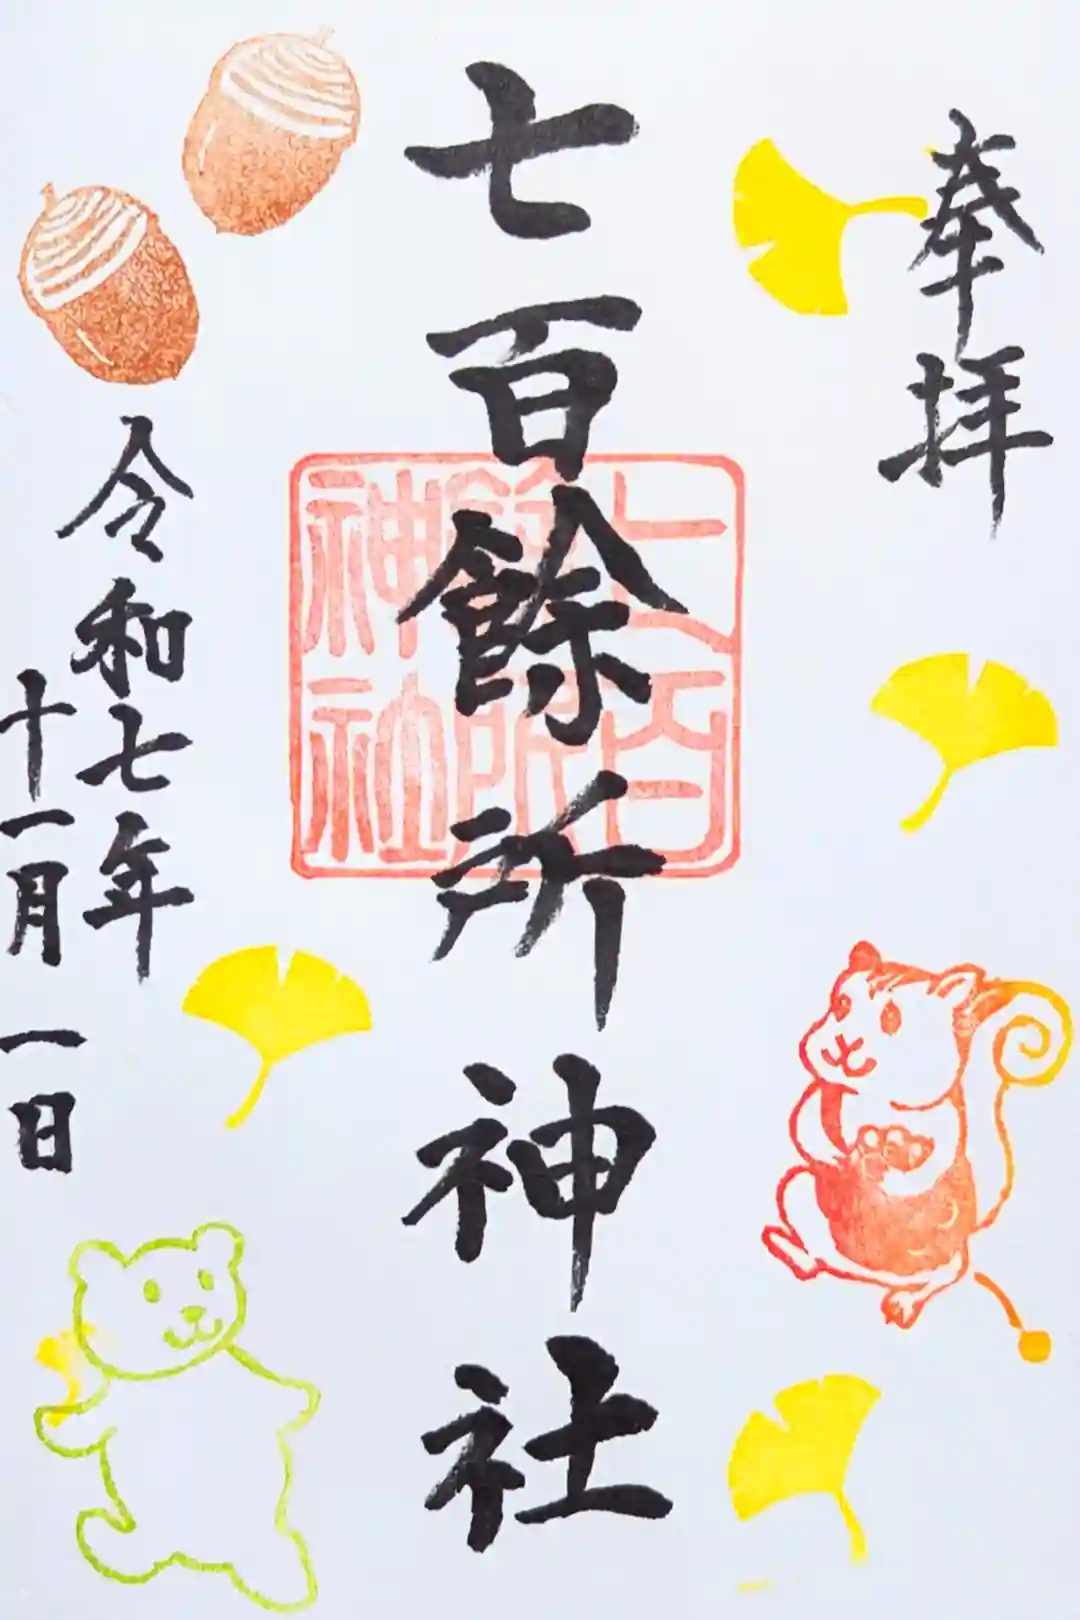 奉拝
七百餘所神社
七百
餘所
神社
令和七年
十一月一日